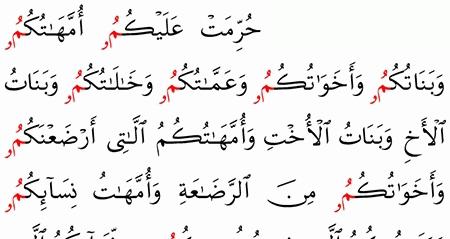 حُرِّمَتْ عَلَيْكُمُۥ أُمَّهَـٰتُكُمُۥ
وَبَنَاتُكُمُۥ وَأَخَوَٰتُكُمُۥ وَعَمَّـٰتُكُمُۥ وَخَـٰلَـٰتُكُمُۥ وَبَنَاتُ
ٱلْأَخِ وَبَنَاتُ ٱلْأُخْتِ وَأُمَّهَـٰتُكُمُ ٱلَّـٰتِى أَرْضَعْنَكُمُۥ
وَأَخَوَٰتُكُمُۥ مِنَ ٱلرَّضَـٰعَةِ وَأُمَّهَـٰتُ نِسَآئِكُمُۥ